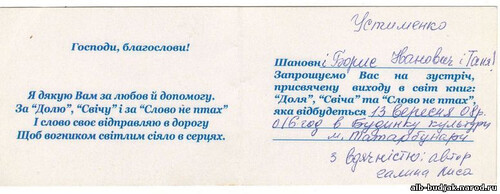 Господи, благослови!
Я дякую Вам за любов й допомогу.
За "Долю", "Свічу" і за "Слово не птах"
І слово своє відправляю в дорогу
Щоб вогником світлим сіяло в серцях.
Устименко
Шановні Борис Іванович і Таня!
Запрошуємо Вас на зустріч,
присвячену виходу в світ книг:
"Доля", "Свіча" та "Слово не птах",
яка відбудеться 13 вересня 08р.
о 16 год в Будинку культури
м. Татарбунари
З вдячністю: автор
Галина Лиса
alb-budjak.narod.ru